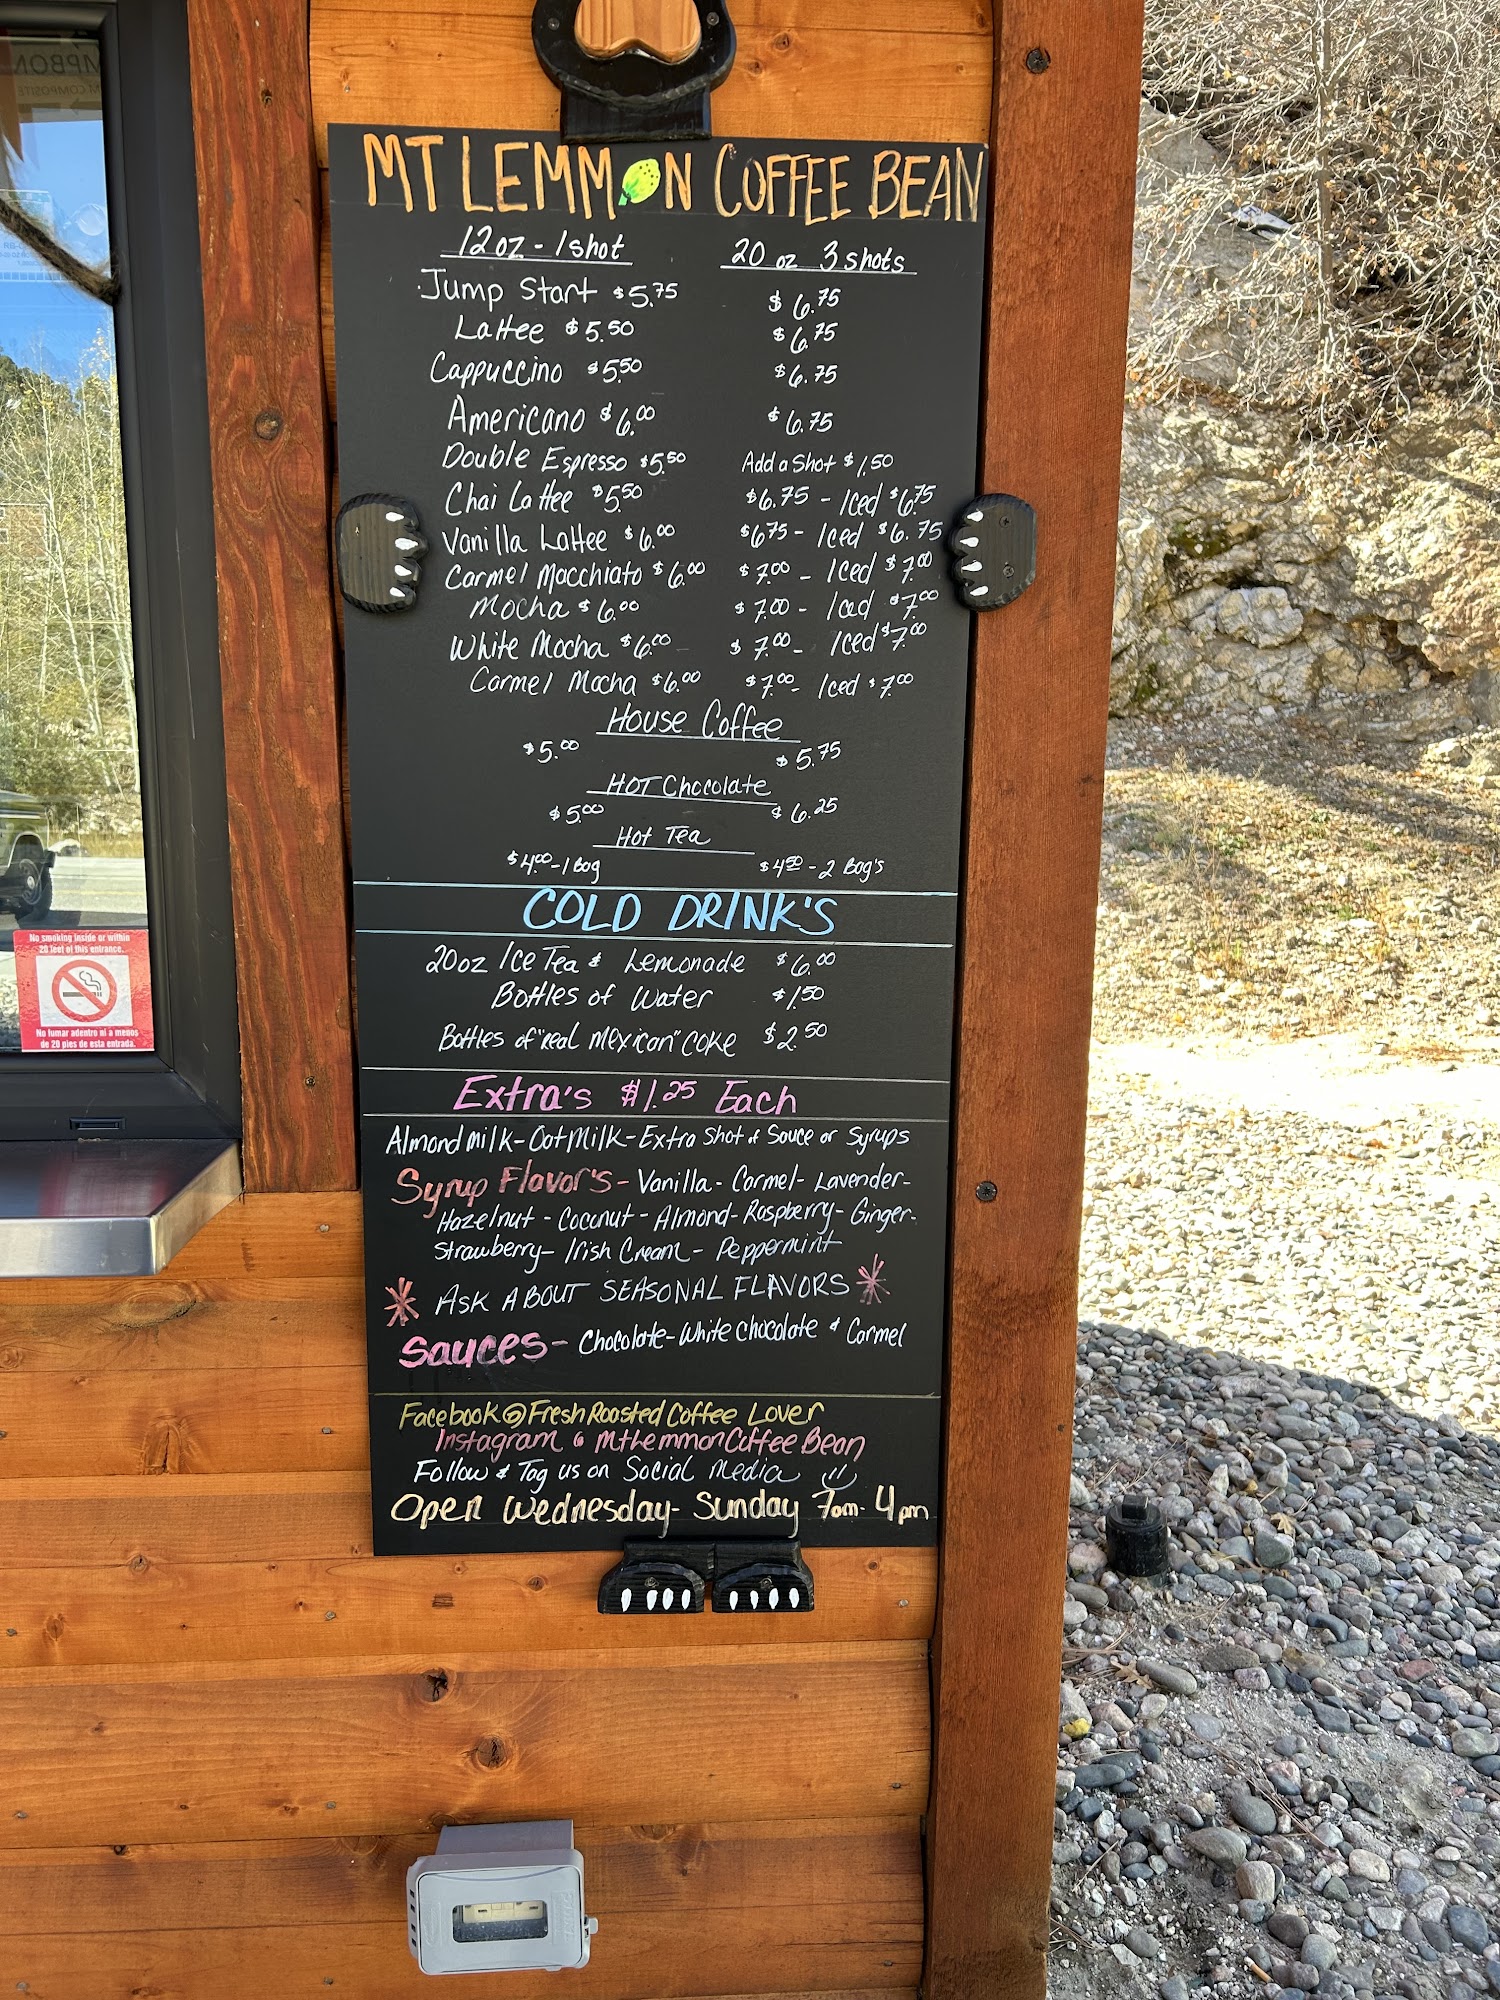 MT LEMMON COFFEE BEAN
12 oz - 1 shot 20 oz 3 shots
Jump Start $5.75 $6.75
Lattee $5.50 $6.75
Cappuccino $5.50 $6.75
Americano $6.00 $6.75
Double Espresso $5.50 Add a Shot $1.50
Chai Lattee $5.50 $6.75 - Iced $6.75
Vanilla Lattee $6.00 $6.75 - Iced $6.75
Carmel Macchiato $6.00 $7.00 - Iced $7.00
Mocha $6.00 $7.00 - Iced $7.00
White Mocha $6.00 $7.00 - Iced $7.00
Carmel Mocha $6.00 $7.00 - Iced $7.00
House Coffee
$5.00 $5.75
HOT Chocolate
$5.00 $6.25
Hot Tea
$4.00 - 1 Bag $4.50 - 2 Bag's
COLD DRINK'S
20oz Ice Tea & Lemonade $6.00
Bottles of Water $1.50
Bottles of "real Mexican" COKE $2.50
Extra's $1.25 Each
Almond milk - Oat Milk - Extra Shot of Sauce or Syrups
Syrup Flavor's - Vanilla - Carmel - Lavender -
Hazelnut - Coconut - Almond - Raspberry - Ginger -
Strawberry - Irish Cream - Peppermint
* ASK ABOUT SEASONAL FLAVORS *
Sauces - Chocolate - White chocolate & Carmel
Facebook @ Fresh Roasted Coffee Lover
Instagram @ MtLemmonCoffee Bean
Follow & Tag us on Social Media
Open Wednesday - Sunday 7am - 4pm
No smoking inside or within
20 feet of this entrance.
No fumar adentro ni a menos
de 20 pies de esta entrada.